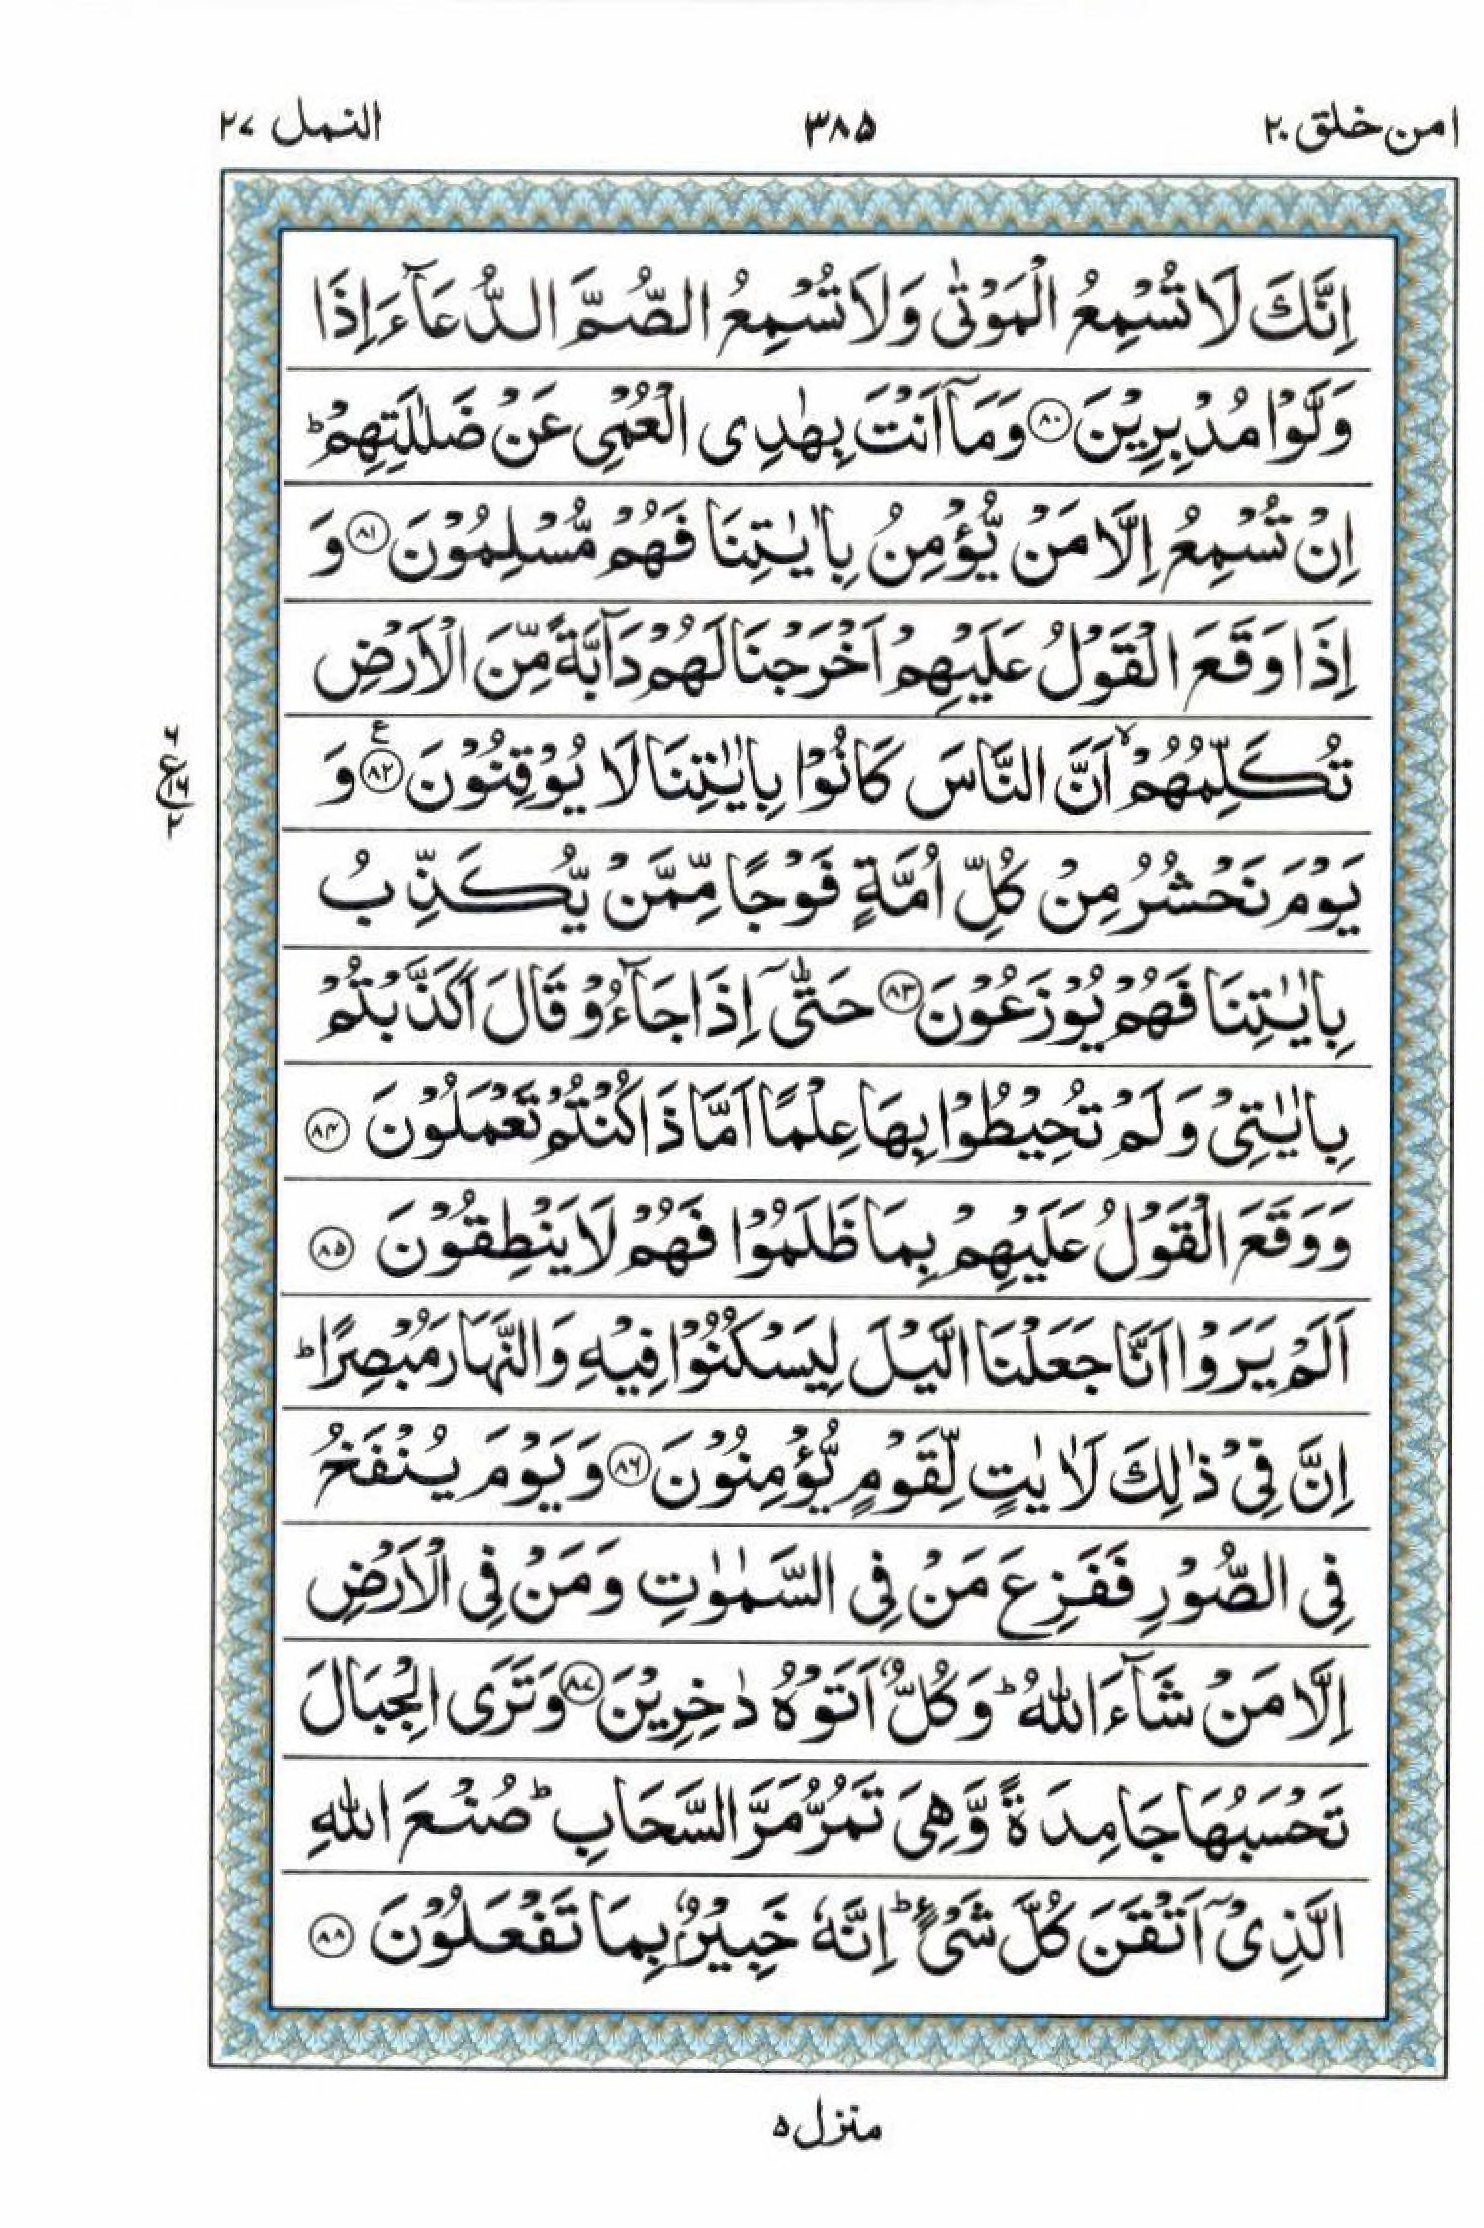 امن خلق ۲۰
۳۸۵
النمل ۲۷
اِنَّكَ لَا تُسْمِعُ الْمَوْتٰى وَلَا تُسْمِعُ الصُّمَّ الدُّعَآءَ اِذَا
وَلَّوْا مُدْبِرِيْنَ ۝۸۰ وَمَاۤ اَنْتَ بِهٰدِى الْعُمْىِ عَنْ ضَلٰلَتِهِمْ ؕ
اِنْ تُسْمِعُ اِلَّا مَنْ يُّؤْمِنُ بِاٰيٰتِنَا فَهُمْ مُّسْلِمُوْنَ ۝۸۱ وَ
اِذَا وَقَعَ الْقَوْلُ عَلَيْهِمْ اَخْرَجْنَا لَهُمْ دَآبَّةً مِّنَ الْاَرْضِ
تُكَلِّمُهُمْ ۙ اَنَّ النَّاسَ كَانُوْا بِاٰيٰتِنَا لَا يُوْقِنُوْنَ ۝۸۲ وَ
ع
ع
۶
۱۶
۲
يَوْمَ نَحْشُرُ مِنْ كُلِّ اُمَّةٍ فَوْجًا مِّمَّنْ يُّكَذِّبُ
بِاٰيٰتِنَا فَهُمْ يُوْزَعُوْنَ ۝۸۳ حَتّٰىۤ اِذَا جَآءُوْ قَالَ اَكَذَّبْتُمْ
بِاٰيٰتِىْ وَلَمْ تُحِيْطُوْا بِهَا عِلْمًا اَمَّا ذَا كُنْتُمْ تَعْمَلُوْنَ ۝۸۴
وَوَقَعَ الْقَوْلُ عَلَيْهِمْ بِمَا ظَلَمُوْا فَهُمْ لَا يَنْطِقُوْنَ ۝۸۵
اَلَمْ يَرَوْا اَنَّا جَعَلْنَا الَّيْلَ لِيَسْكُنُوْا فِيْهِ وَالنَّهَارَ مُبْصِرًا ؕ
اِنَّ فِىْ ذٰلِكَ لَاٰيٰتٍ لِّقَوْمٍ يُّؤْمِنُوْنَ ۝۸۶ وَيَوْمَ يُنْفَخُ
فِى الصُّوْرِ فَفَزِعَ مَنْ فِى السَّمٰوٰتِ وَمَنْ فِى الْاَرْضِ
اِلَّا مَنْ شَآءَ اللّٰهُ ؕ وَكُلٌّ اَتَوْهُ دٰخِرِيْنَ ۝۸۷ وَتَرَى الْجِبَالَ
تَحْسَبُهَا جَامِدَةً وَّهِىَ تَمُرُّ مَرَّ السَّحَابِ ؕ صُنْعَ اللّٰهِ
الَّذِىْۤ اَتْقَنَ كُلَّ شَىْءٍ ؕ اِنَّهٗ خَبِيْرٌۢ بِمَا تَفْعَلُوْنَ ۝۸۸
منزل ۵